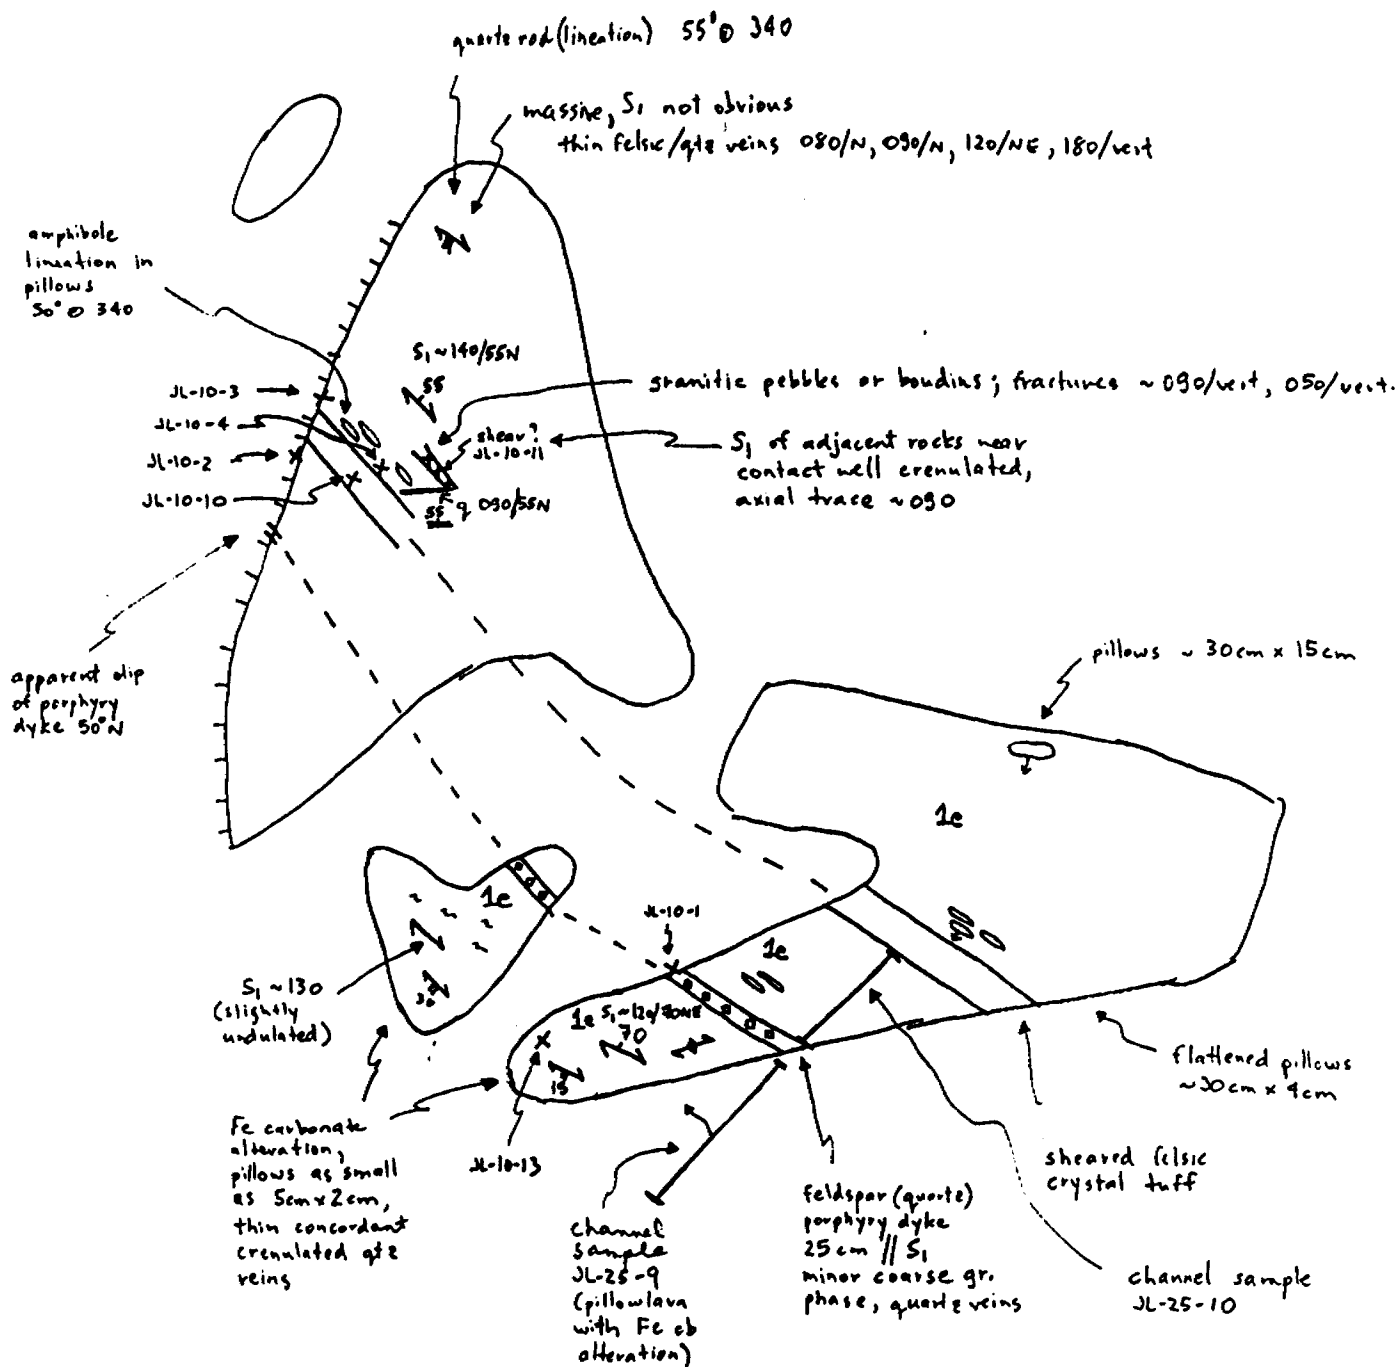 quartz rod (lineation) 55° @ 340
massive, S1 not obvious
thin felsic/qtz veins 080/N, 090/N, 120/NE, 180/vert
amphibole
lineation in
pillows
50° @ 340
S1 ~ 140/55N
55
JL-10-3
JL-10-4
JL-10-2
JL-10-10
granitic pebbles or boudins; fractures ~ 090/vert, 050/vert.
shear?
JL-10-11
S1 of adjacent rocks near
contact well crenulated,
axial trace ~ 090
55 q 090/55N
apparent dip
of porphyry
dyke 50°N
pillows ~ 30cm x 15cm
1e
1e
JL-10-1
1e
S1 ~ 130
(slightly
undulated)
1e S1 ~ 120/70NE
70
15
flattened pillows
~30cm x 4cm
Fe carbonate
alteration,
pillows as small
as 5cm x 2cm,
thin concordant
crenulated qtz
veins
JL-10-13
channel
sample
JL-25-9
(pillow lava
with Fe cb
alteration)
feldspar (quartz)
porphyry dyke
25 cm // S1
minor coarse gr.
phase, quartz veins
sheared felsic
crystal tuff
channel sample
JL-25-10